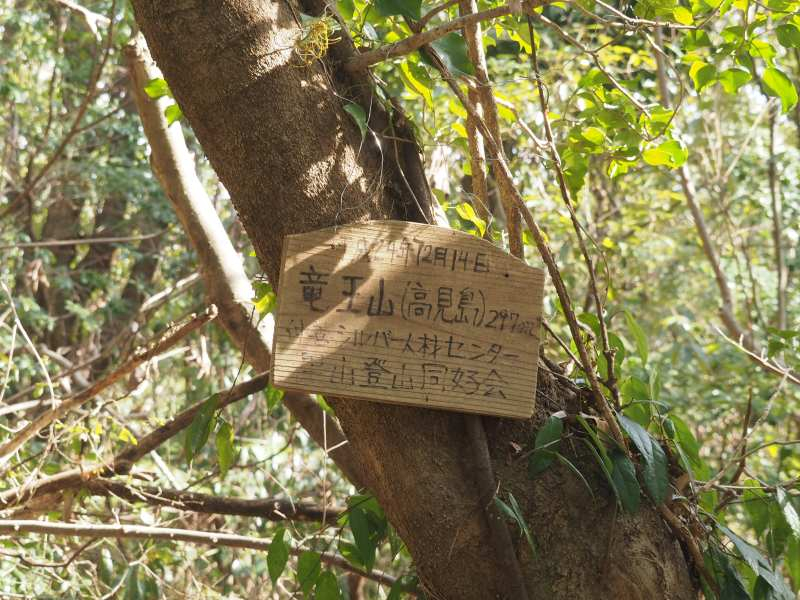 24年12月14日
竜王山(高見島)297m
シルバー人材センター
山登山同好会